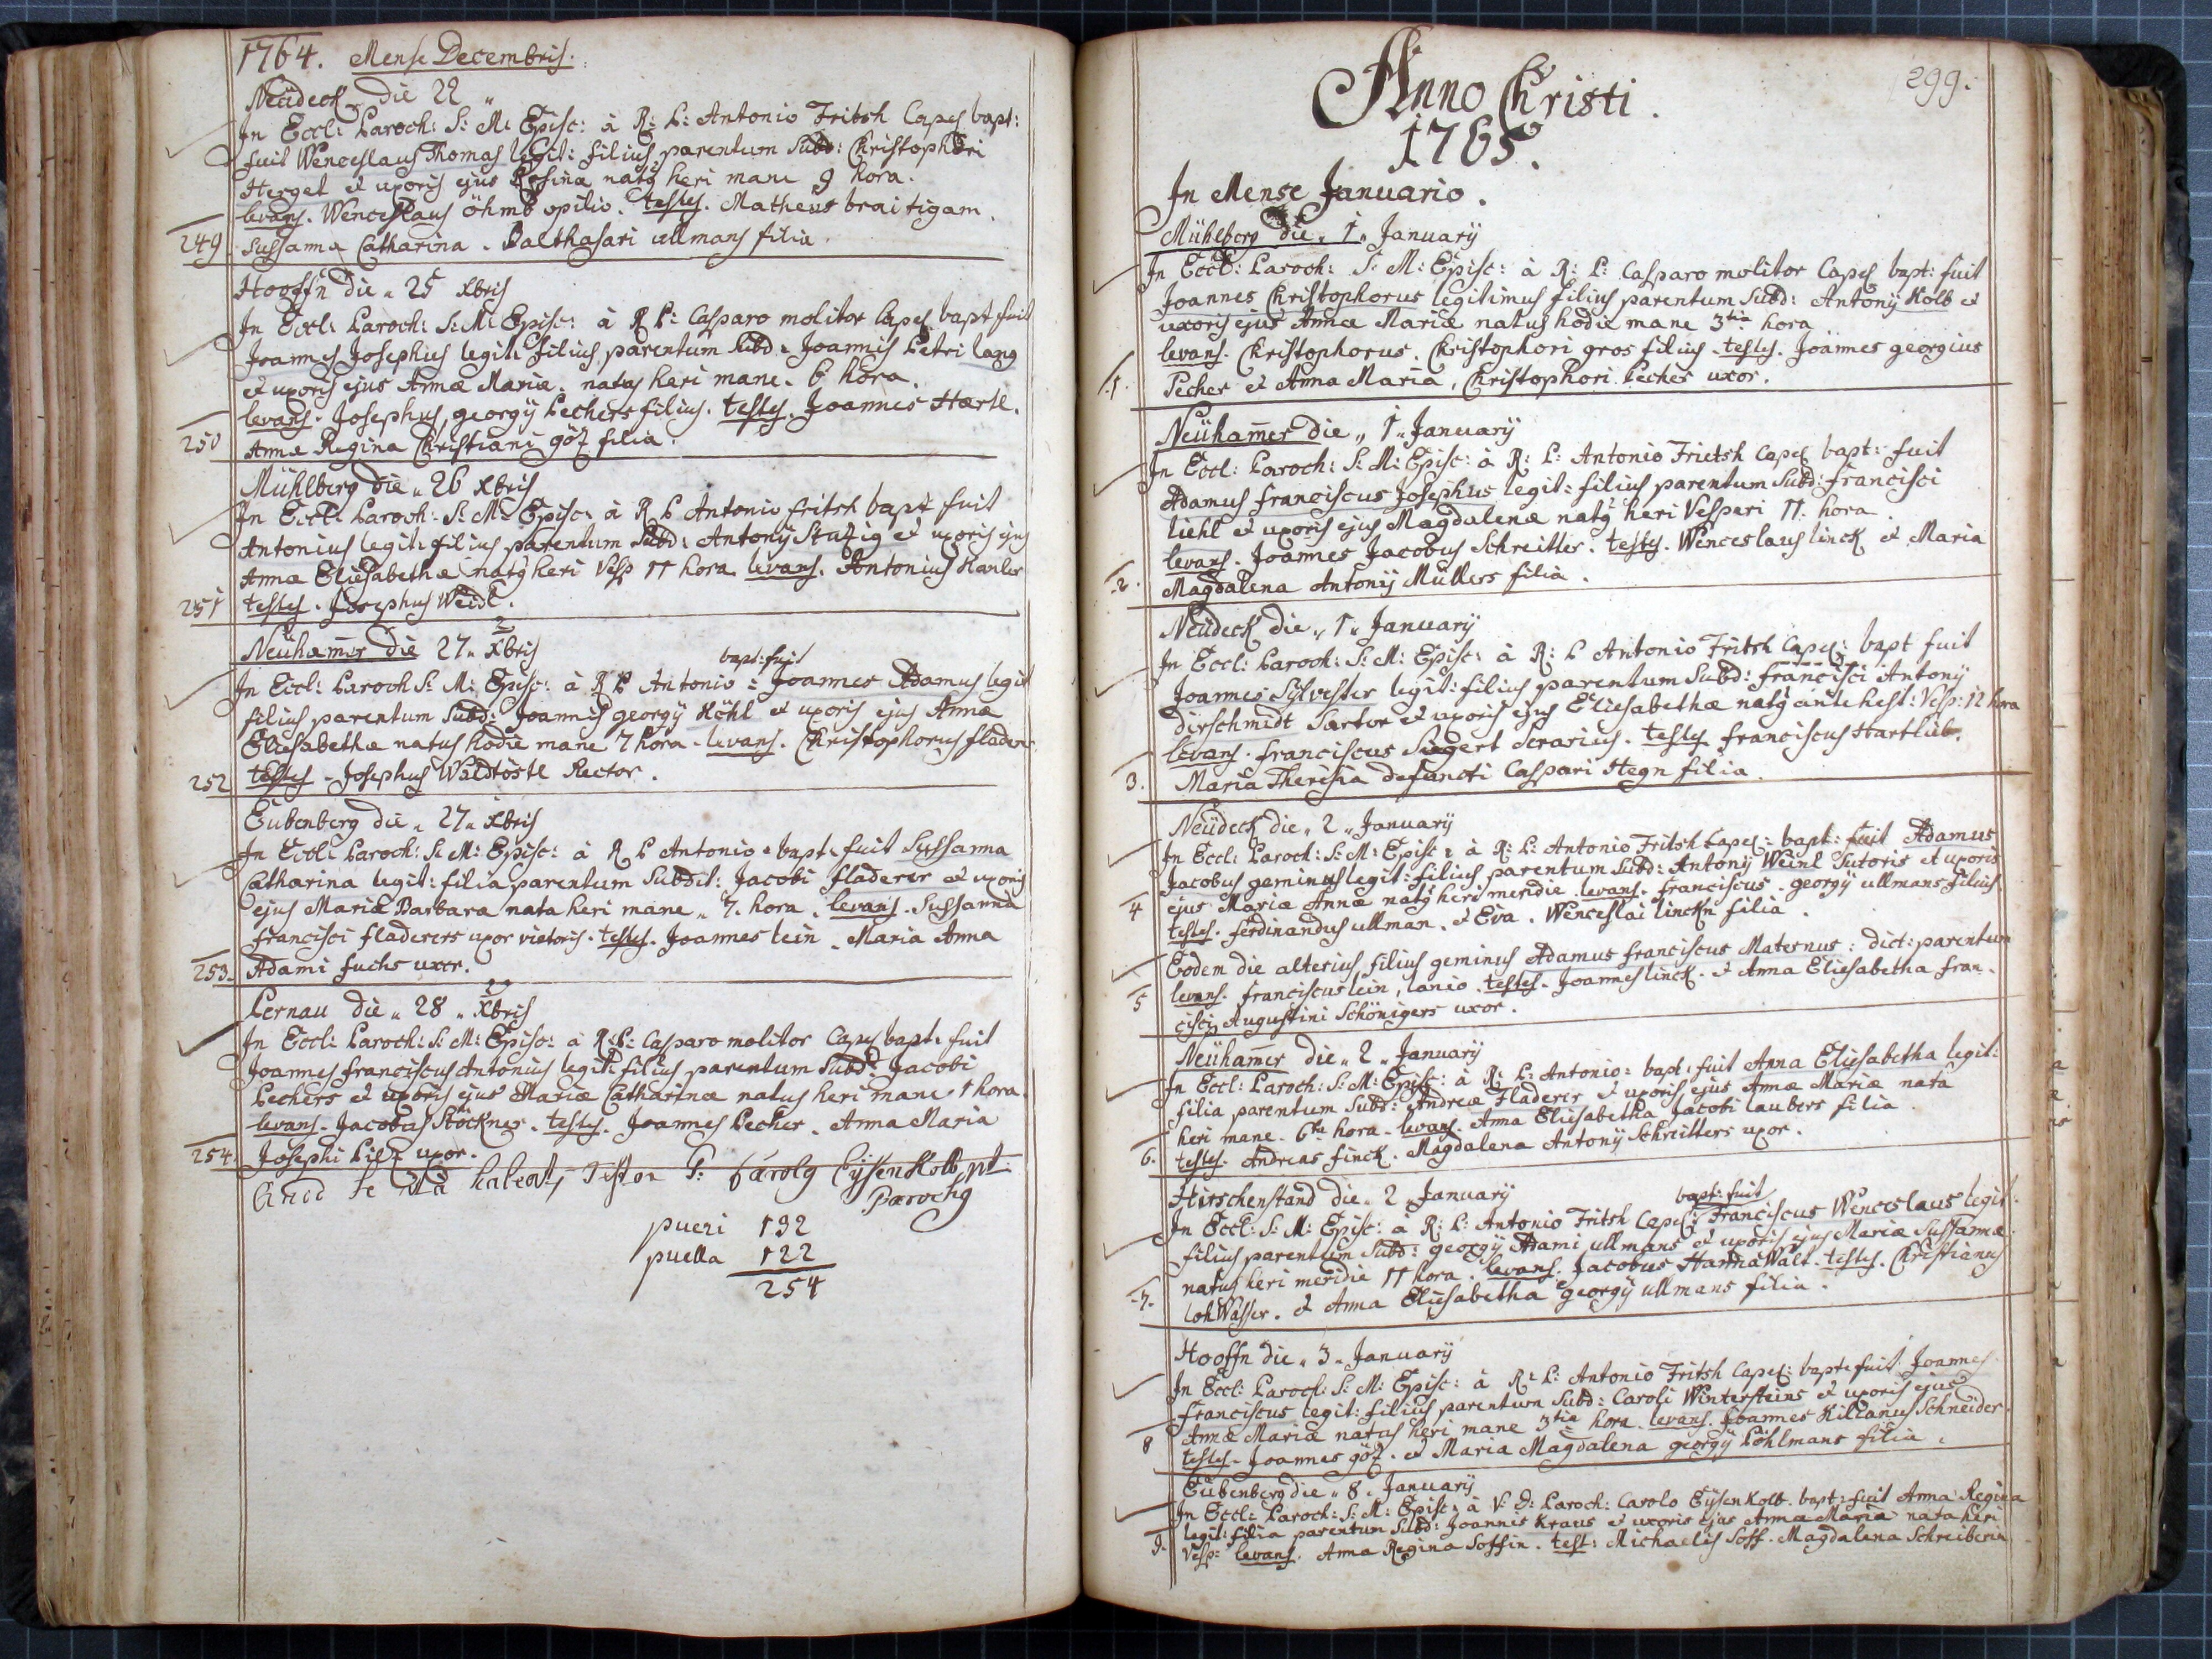 1764. Mense Decembris.
Neüdeck die 22 "
In Eccl: Paroch: S: M: Episc: à R: P: Antonio Fritsh Capel bapt:
fuit Wenceslaus Thomas legit: filius parentum Subd: Christophori
Herget et uxoris ejus Rosinæ natq heri mane 9 hora.
levans. Wenceslaus öhmb opilio. testes. Matheus braitigam.
249. Sussanna Catharina. Balthasari ullmans filia.
Hooffn die " 25 Xbris
In Eccl: Paroch: S: M: Episc: à R P: Casparo molitor Capel bapt fuit
Joannes Josephus legit: filius parentum Subd: Joannis Petri lang
et uxoris ejus Annæ Mariæ. natus heri mane. 6 hora.
levans. Josephus, georgÿ Pechers filius. testes. Joannes Hærtl.
250 Anna Regina Christiani göz filia.
Mühlberg die " 26 Xbris
In Eccl: Paroch: S: M: Episc: à R P Antonio fritsh bapt fuit
Antonius legit: filius parentum Subd: Antonÿ Stuzig et uxoris ejus
Annæ Eliesabethæ natq heri Vesp 11 hora. levans. Antonius Hanler
251 testes. Josephus Weidl.
Neühamer die 27 " Xbris
bapt: fuit
In Eccl: Paroch S: M: Episc: à R P Antonio : Joannes Adamus legit
filius parentum Subd: Joannis georgÿ Köhl et uxoris ejus Annæ
Eliesabethæ natus hodie mane 7 hora. levans. Christophorus flader
252 testes. Josephus Waldtöstl Rector.
Eübenberg die " 27 " Xbris
In Eccl: Paroch: S: M: Episc: à R P Antonio. bapt: fuit Sussanna
Catharina legit: filia parentum Subdit: Jacobi fladerer et uxoris
ejus Mariæ Barbara nata heri mane " 7. hora. levans. Sussanna
francisci fladerers uxor vietoris. testes. Joannes lein. Maria Anna
253. Adami fuchs uxor.
Pernau die " 28 " Xbris
In Eccl: Paroch: S: M: Episc: à R: P: Casparo molitor Capel bapt: fuit
Joannes franciscus Antonius legit: filius parentum Subd: Jacobi
Pechers et uxoris ejus Mariæ Catharinæ natus heri mane 1 hora.
levans. Jacobus Stöckner. testes. Joannes Pecher. Anna Maria
254. Josephi uxor.
Quod se ita habeat, Testor P: Carolq Eÿsenkolb pt.
Parochq
pueri 132
puella 122
254
299.
Anno Christi.
1765.
In Mense Januario.
Mühlberg die " 1 " Januarÿ
In Eccl: Paroch: S: M: Episc: à R: P: Casparo molitor Capel bapt: fuit
Joannes Christophorus legitimus filius parentum Subd: Antonÿ Kolb et
uxoris ejus Annæ Mariæ natus hodie mane 3tia hora
levans. Christophorus. Christophori gros filius. testes. Joannes georgius
1. Pecher et Anna Maria, Christophori Pecher uxor.
Neühamer die " 1 " Januarÿ
In Eccl: Paroch: S: M: Episc: à R: P: Antonio Frietsh Capel bapt: fuit
Adamus franciscus Josephus legit: filius parentum Subd: francisci
liehl et uxoris ejus Magdalenæ natq heri Vesperi 11. hora.
levans. Joannes Jacobus Schreitter. testes. Wenceslaus linck et Maria
2. Magdalena Antonÿ Müllers filia.
Neüdeck die " 1 " Januarÿ
In Eccl: Paroch: S: M: Episc: à R: P Antonio Fritsh Capel: bapt fuit
Joannes Sÿlvester legit: filius parentum Subd: francisci Antonÿ
dirschmidt Sartor et uxoris ejus Eliesabethæ natq ante hest: Vesp: 12 hora
levans. franciscus Siegert Serarius. testes franciscus Hartlieb.
3. Maria Theresia defuncti Caspari Hegn filia.
Neüdeck die " 2 " Januarÿ
In Eccl: Paroch: S: M: Episc: à R: P: Antonio Fritsh Capel: bapt: fuit Adamus
Jacobus geminus legit: filius parentum Subd: Antonÿ Weinl Sutoris et uxoris
4 ejus Mariæ Annæ natq heri meridie. levans. franciscus. georgÿ ullmans filius.
testes. ferdinandus ullman. et Eva. Wenceslai linckn filia.
Eodem die alterius filius geminus Adamus franciscus Maternus: dict: parentum
levans. franciscus lein, lanio. testes. Joannes linck. et Anna Eliesabetha fran-
5 cisci Augustini Schönigers uxor.
Neühamer die " 2 " Januarÿ
In Eccl: Paroch: S: M: Episc: à R: P: Antonio: bapt: fuit Anna Eliesabetha legit:
filia parentum Subd: Andreæ Fladerer et uxoris ejus Annæ Mariæ nata
heri mane. 6ta hora. levans. Anna Eliesabetha Jacobi laubers filia.
6. testes. Andreas finck. Magdalena Antonÿ Schreitters uxor.
Hirschenstand die " 2 " Januarÿ
bapt: fuit
In Eccl: S: M: Episc: à R: P: Antonio Fritsh Capel: Franciscus Wenceslaus legit:
filius parentum Subd: georgÿ Adami ullmans et uxoris ejus Mariæ Sussannæ
natus heri meridie 11 hora. levans. Jacobus HannaWalt. testes. Christianus
7. lohWasser. et Anna Eliesabetha georgÿ ullmans filia.
Hooffn die " 3 " Januarÿ
In Eccl: Paroch: S: M: Episc: à R: P: Antonio Fritsh Capel: bapt: fuit Joannes
franciscus legit: filius parentum Subd: Caroli Wintersteins et uxoris ejus
Annæ Mariæ natus heri mane 3tia hora. levans. Joannes Kilianus Schneider.
8 testes. Joannes göz. et Maria Magdalena georgÿ Pöhlmans filia.
Eübenberg die " 8 " Januarÿ
In Eccl: Paroch: S: M: Episc: à V: D: Paroch: Carolo EÿsenKolb. bapt: fuit Anna Regina
legit: filia parentum Subd: Joannis Kraus et uxoris ejus Annæ Mariæ nata heri
9. Vesp: levans. Anna Regina Soffin. test: Michaelis Soff. Magdalena Schreiberin